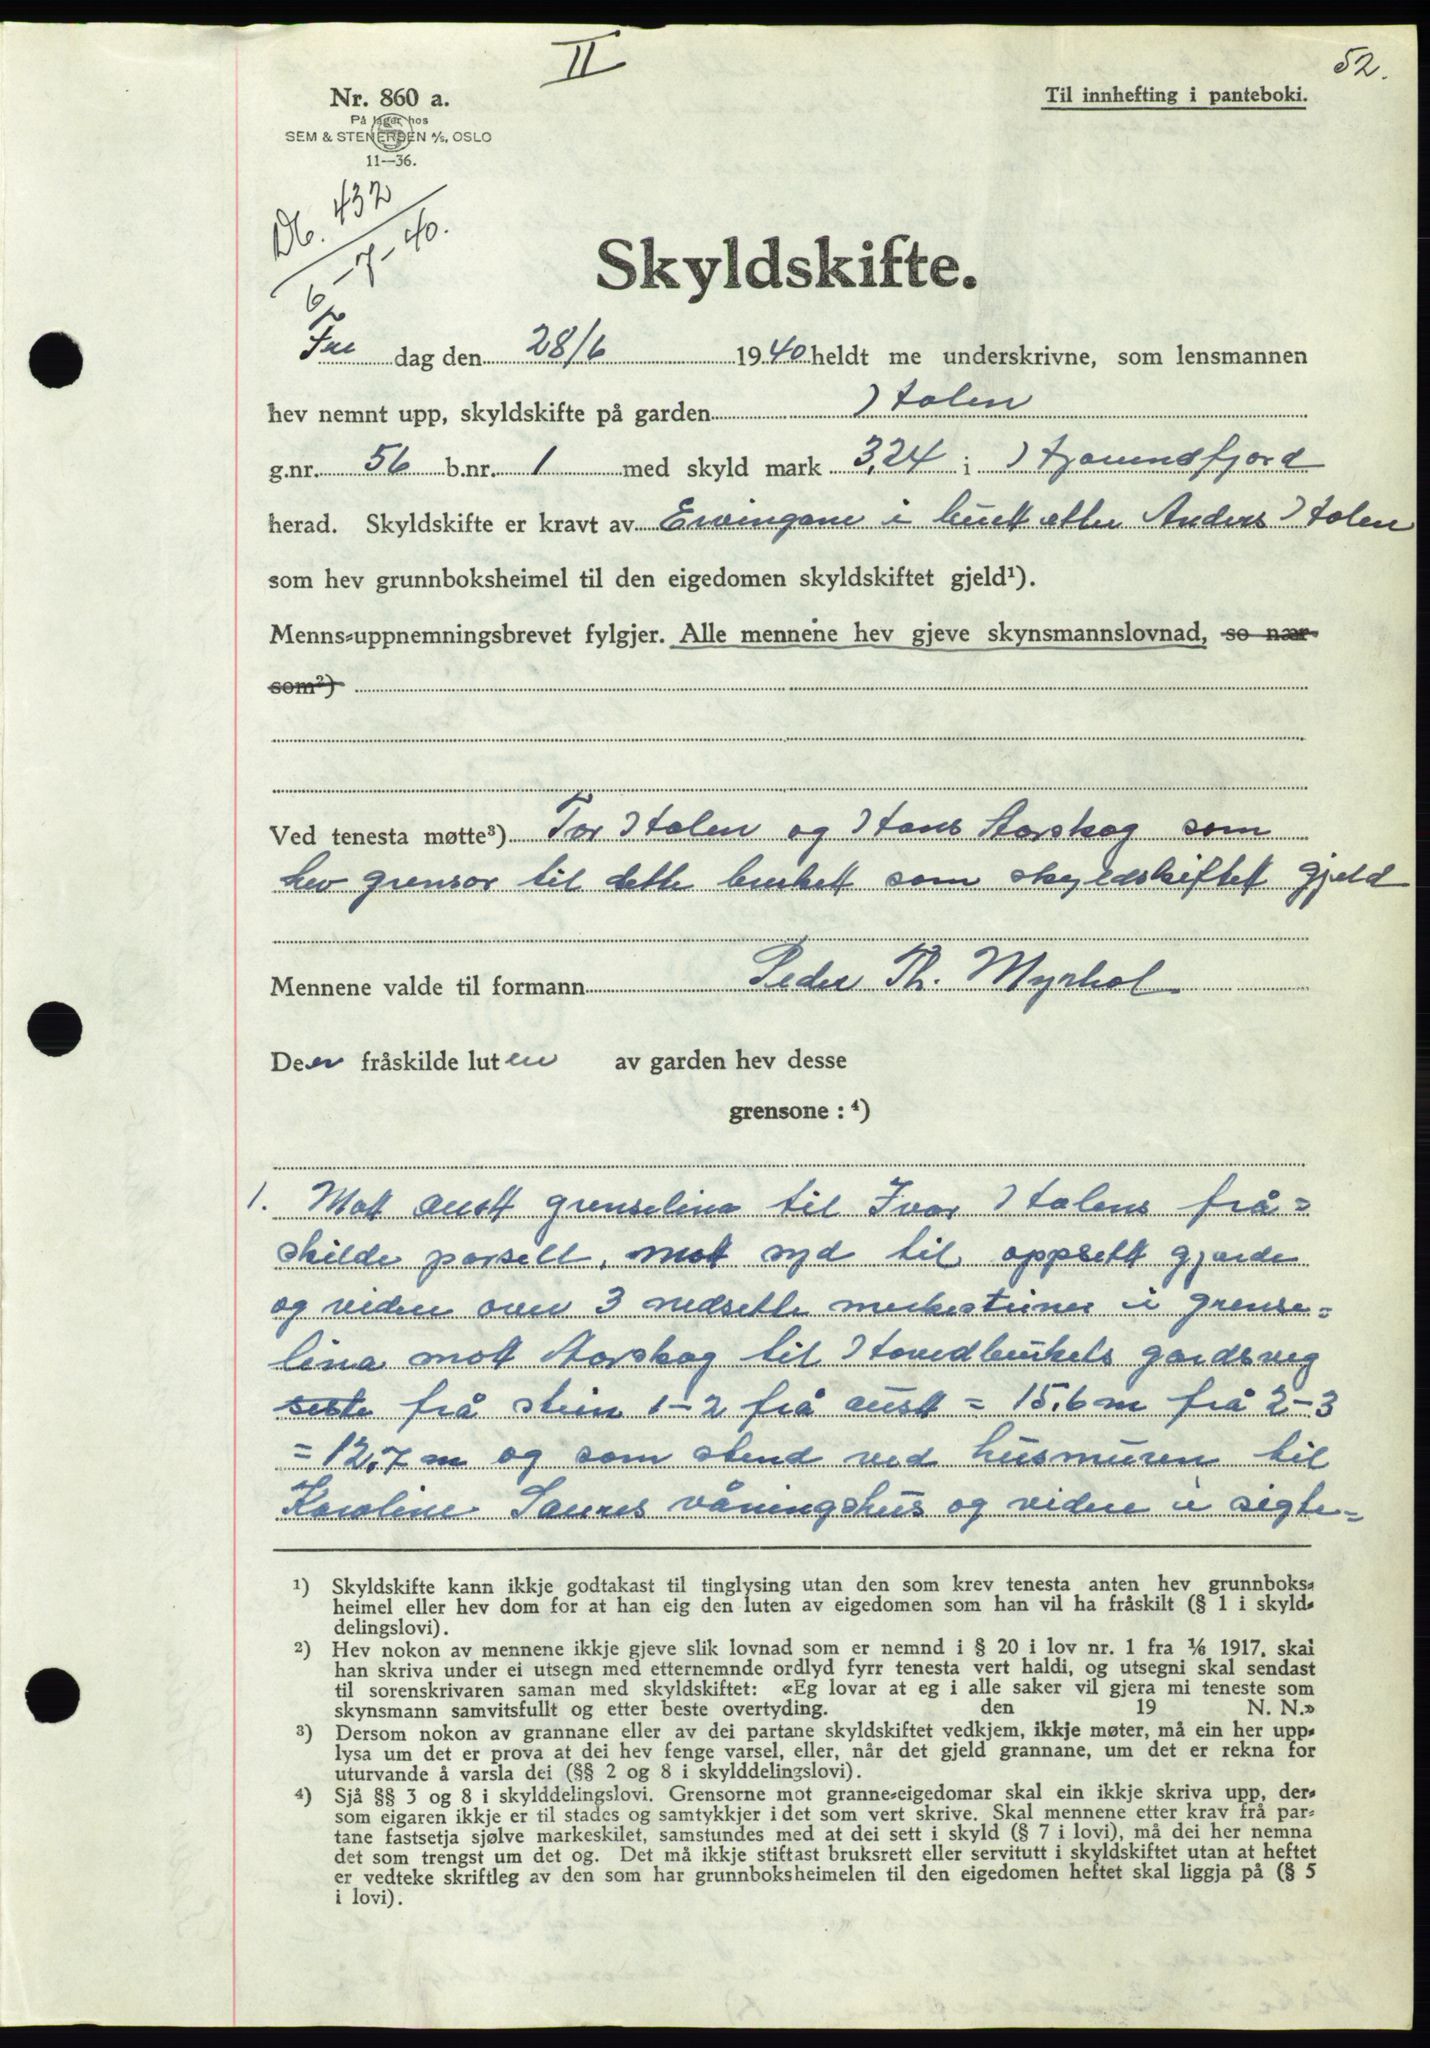 II
52.
Nr. 860 a.
Til innhefting i panteboki.
På lager hos
SEM & STENERSEN A/S, OSLO
11—36.
Db. 432
6-7-40.
Skyldskifte.
Fre dag den 28/6 1940 heldt me underskrivne, som lensmannen
hev nemnt upp, skyldskifte på garden Holen
g.nr. 56 b.nr. 1 med skyld mark 3,24 i Hjørundfjord
herad. Skyldskifte er kravt av Ervingane i buet etter Anders Holen
som hev grunnboksheimel til den eigedomen skyldskiftet gjeld¹).
Menns-uppnemningsbrevet fylgjer. Alle mennene hev gjeve skynsmannslovnad, so nær
som²)
Ved tenesta møtte³) Tor Holen og Hans Aarskog som
hev grensor til dette bruket som skyldskiftet gjeld
Mennene valde til formann Peder Th. Myrhol
Den fråskilde luten av garden hev desse
grensone : ⁴)
1. Mott aust grenselina til Ivar Holens frå=
skilde parsell, mot syd til oppsett gjærde
og videre over 3 nedsette merkesteiner i grense=
lina mott Aarskog til Hovedbrukets gardsveg
seste frå stein 1-2 frå aust = 15,6 m frå 2-3
= 12,7 m og som stend ved husmuren til
Karoline Saures våningshus og videre i sigte=
¹) Skyldskifte kann ikkje godtakast til tinglysing utan den som krev tenesta anten hev grunnboks-
heimel eller hev dom for at han eig den luten av eigedomen som han vil ha fråskilt (§ 1 i skyld-
delingslovi).
²) Hev nokon av mennene ikkje gjeve slik lovnad som er nemnd i § 20 i lov nr. 1 fra 1/6 1917, skal
han skriva under ei utsegn med etternemnde ordlyd fyrr tenesta vert haldi, og utsegni skal sendast
til sorenskrivaren saman med skyldskiftet: «Eg lovar at eg i alle saker vil gjera mi teneste som
skynsmann samvitsfullt og etter beste overtyding. den 19 N. N.»
³) Dersom nokon av grannane eller av dei partane skyldskiftet vedkjem, ikkje møter, må ein her upp-
lysa um det er prova at dei hev fenge varsel, eller, når det gjeld grannane, um det er rekna for
uturvande å varsla dei (§§ 2 og 8 i skylddelingslovi).
⁴) Sjå §§ 3 og 8 i skylddelingslovi. Grensorne mot granne-eigedomar skal ein ikkje skriva upp, der-
som eigaren ikkje er til stades og samtykkjer i det som vert skrive. Skal mennene etter krav frå par-
tane fastsetja sjølve markeskilet, samstundes med at dei sett i skyld (§ 7 i lovi), må dei her nemna
det som trengst um det og. Det må ikkje stiftast bruksrett eller servitutt i skyldskiftet utan at heftet
er vedteke skriftleg av den som har grunnboksheimelen til den eigedomen heftet skal liggja på (§ 5
i lovi).